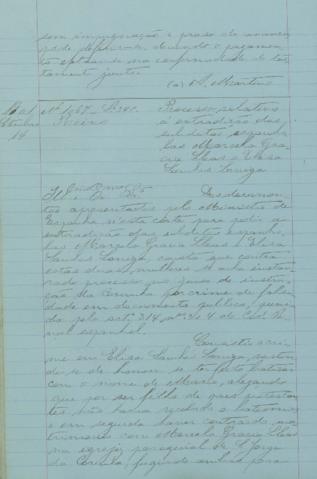 sem impugnação e praso de
pode deferir-se, devendo o pagamento
effectuar-se na conformidade do tes-
tamento junto.
(a) A. Martins
Outubro
14
Nº 167 - L.º
Reino
Processo relativo
á extradição das
subditas hespanho-
las Marcela Gra-
cia Ibeas e Elisa
Sanches Loriga
Il.mo e Ex.mo Sr.
Dos documen-
tos apresentados pelo Ministro de
Hespanha n'esta côrte para pedir a
extradição das subditas hespanho-
las Marcela Gracia Ibeas e Elisa
Sanches Loriga, consta que contra
estas duas mulheres se acha instau-
rado processo no juizo de instruc-
ção da Corunha por crime de falsi-
dade em documento publico, puni-
da pelo art. 314 nº 4 do Cod. Pe-
nal espanhol.
Consiste o cri-
me em Elisa Sanches Loriga, vestin-
do-se de homem se ter feito batisar
com o nome de Mario, alegando
que por ser filho de paes protestan-
tes não havia recebido o batismo,
e em seguida haver contraido ma-
trimonio com Marcela Gracia Ibeas
na egreja parochial de S. Jorge
da Corunha, fugindo ambas para